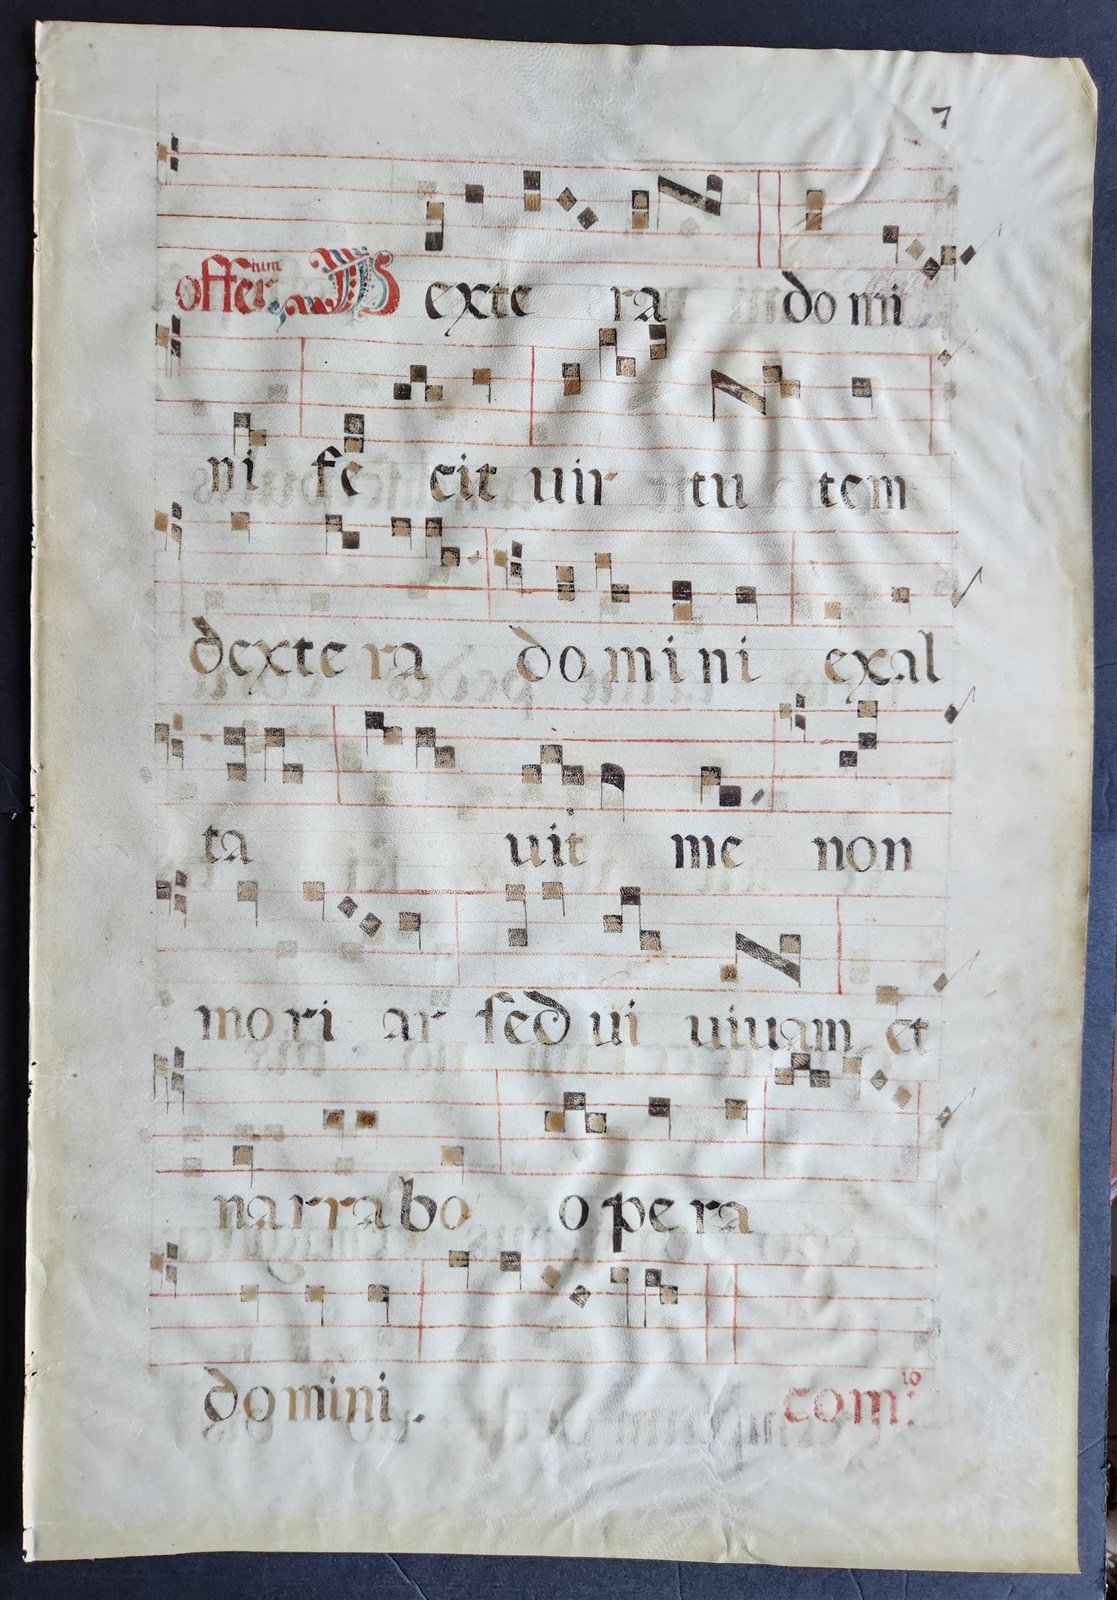 7
offerium Dexte ra do mi
ni fe cit uir tu tem
dexte ra do mi ni exal
ta uit me non
mo ri ar sed ui uiuam et
narrabo opera
domini. com:io